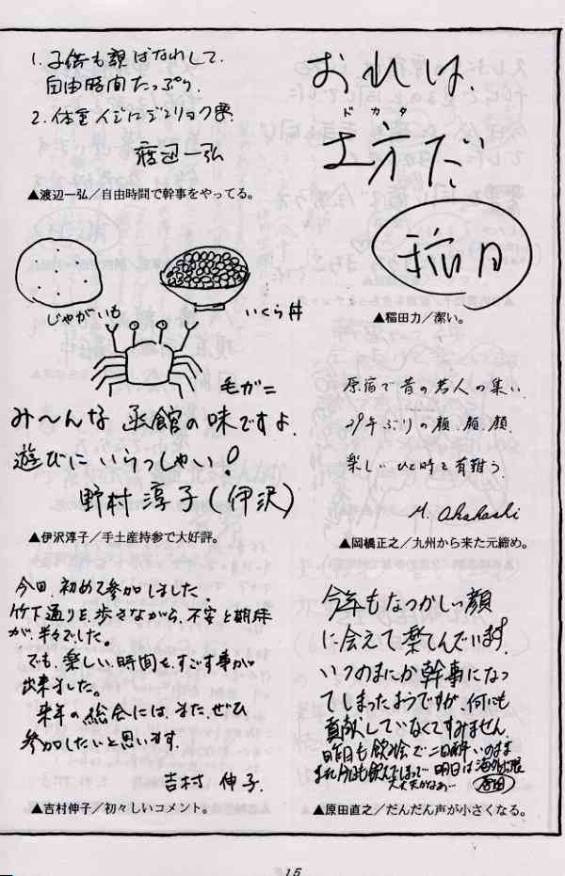 1. 子供も親ばなれして、
自由時間たっぷり。
2. 体重
渡辺一弘
▲渡辺一弘／自由時間で幹事をやってる。
おれは、
ドカタ
土方だ
稲田
▲稲田力／潔い。
じゃがいも
いくら丼
毛ガニ
み〜んな 函館の味ですよ。
遊びに いらっしゃい!
野村 淳子(伊沢)
▲伊沢淳子／手土産持参で大好評。
原宿で昔の若人の集い
29年ぶりの顔、顔、顔
楽しいひと時を有難う
M. Okahashi
▲岡橋正之／九州から来た元締め。
今回、初めて参加しました。
竹下通りを歩きながら、不安と期待
が、半々でした。
でも、楽しい時間を、すごす事が
出来ました。
来年の総会には、また、ぜひ
参加したいと思います。
吉村 伸子
▲吉村伸子／初々しいコメント。
今年もなつかしい顔
に会えて楽しんでいます。
いつのまにか幹事になっ
てしまったようですが、何にも
貢献していなくてすみません。
昨日も飲み会で二日酔いのまま
また今日も飲んでしまって… 明日は海外出張
大丈夫かなあ… 原田
▲原田直之／だんだん声が小さくなる。
15